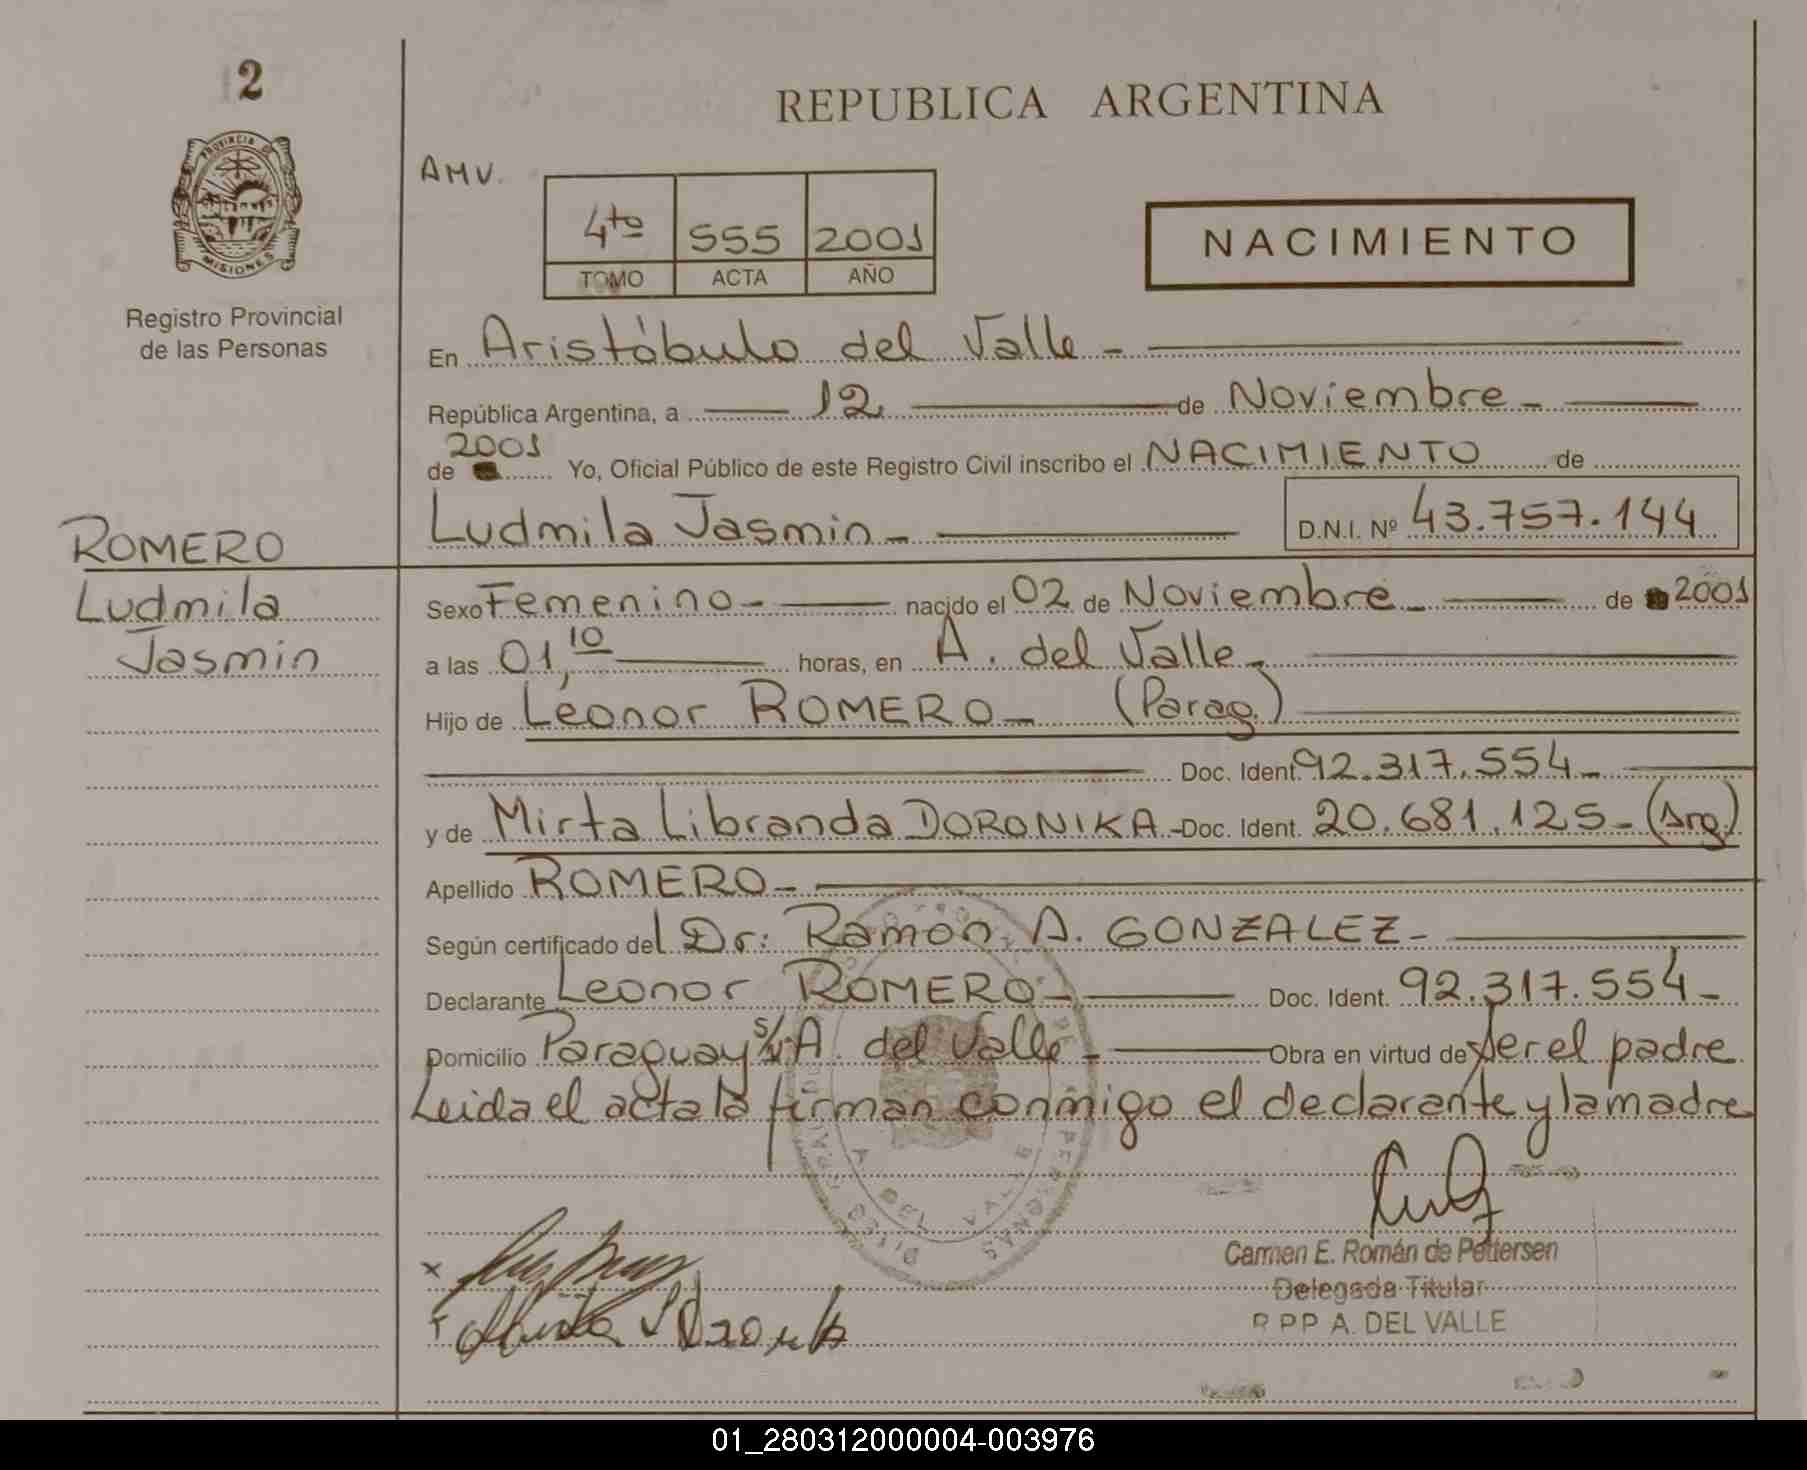 2
REPUBLICA ARGENTINA
PROVINCIA DE
MISIONES
Registro Provincial
de las Personas
AMV.
4to 555 2001
TOMO ACTA AÑO
NACIMIENTO
En Aristóbulo del Valle -
República Argentina, a 12 de Noviembre -
de 2001 Yo, Oficial Público de este Registro Civil inscribo el NACIMIENTO de
Ludmila Jasmin - D.N.I. Nº 43.757.144
ROMERO
Ludmila
Jasmin
Sexo Femenino - nacido el 02 de Noviembre - de 2001
a las 01,10 horas, en A. del Valle -
Hijo de Leonor ROMERO - (Parag.)
Doc. Ident. 92.317.554 -
y de Mirta Libranda DORONIKA - Doc. Ident. 20.681.125 - (Arg.)
Apellido ROMERO -
Según certificado del Dr: Ramón A. GONZALEZ -
Declarante Leonor ROMERO - Doc. Ident. 92.317.554 -
Domicilio Paraguay s/n A. del Valle - Obra en virtud de ser el padre
Leida el acta la firman conmigo el declarante y la madre
Carmen E. Román de Pettersen
Delegada Titular
R P P A. DEL VALLE
01_280312000004-003976